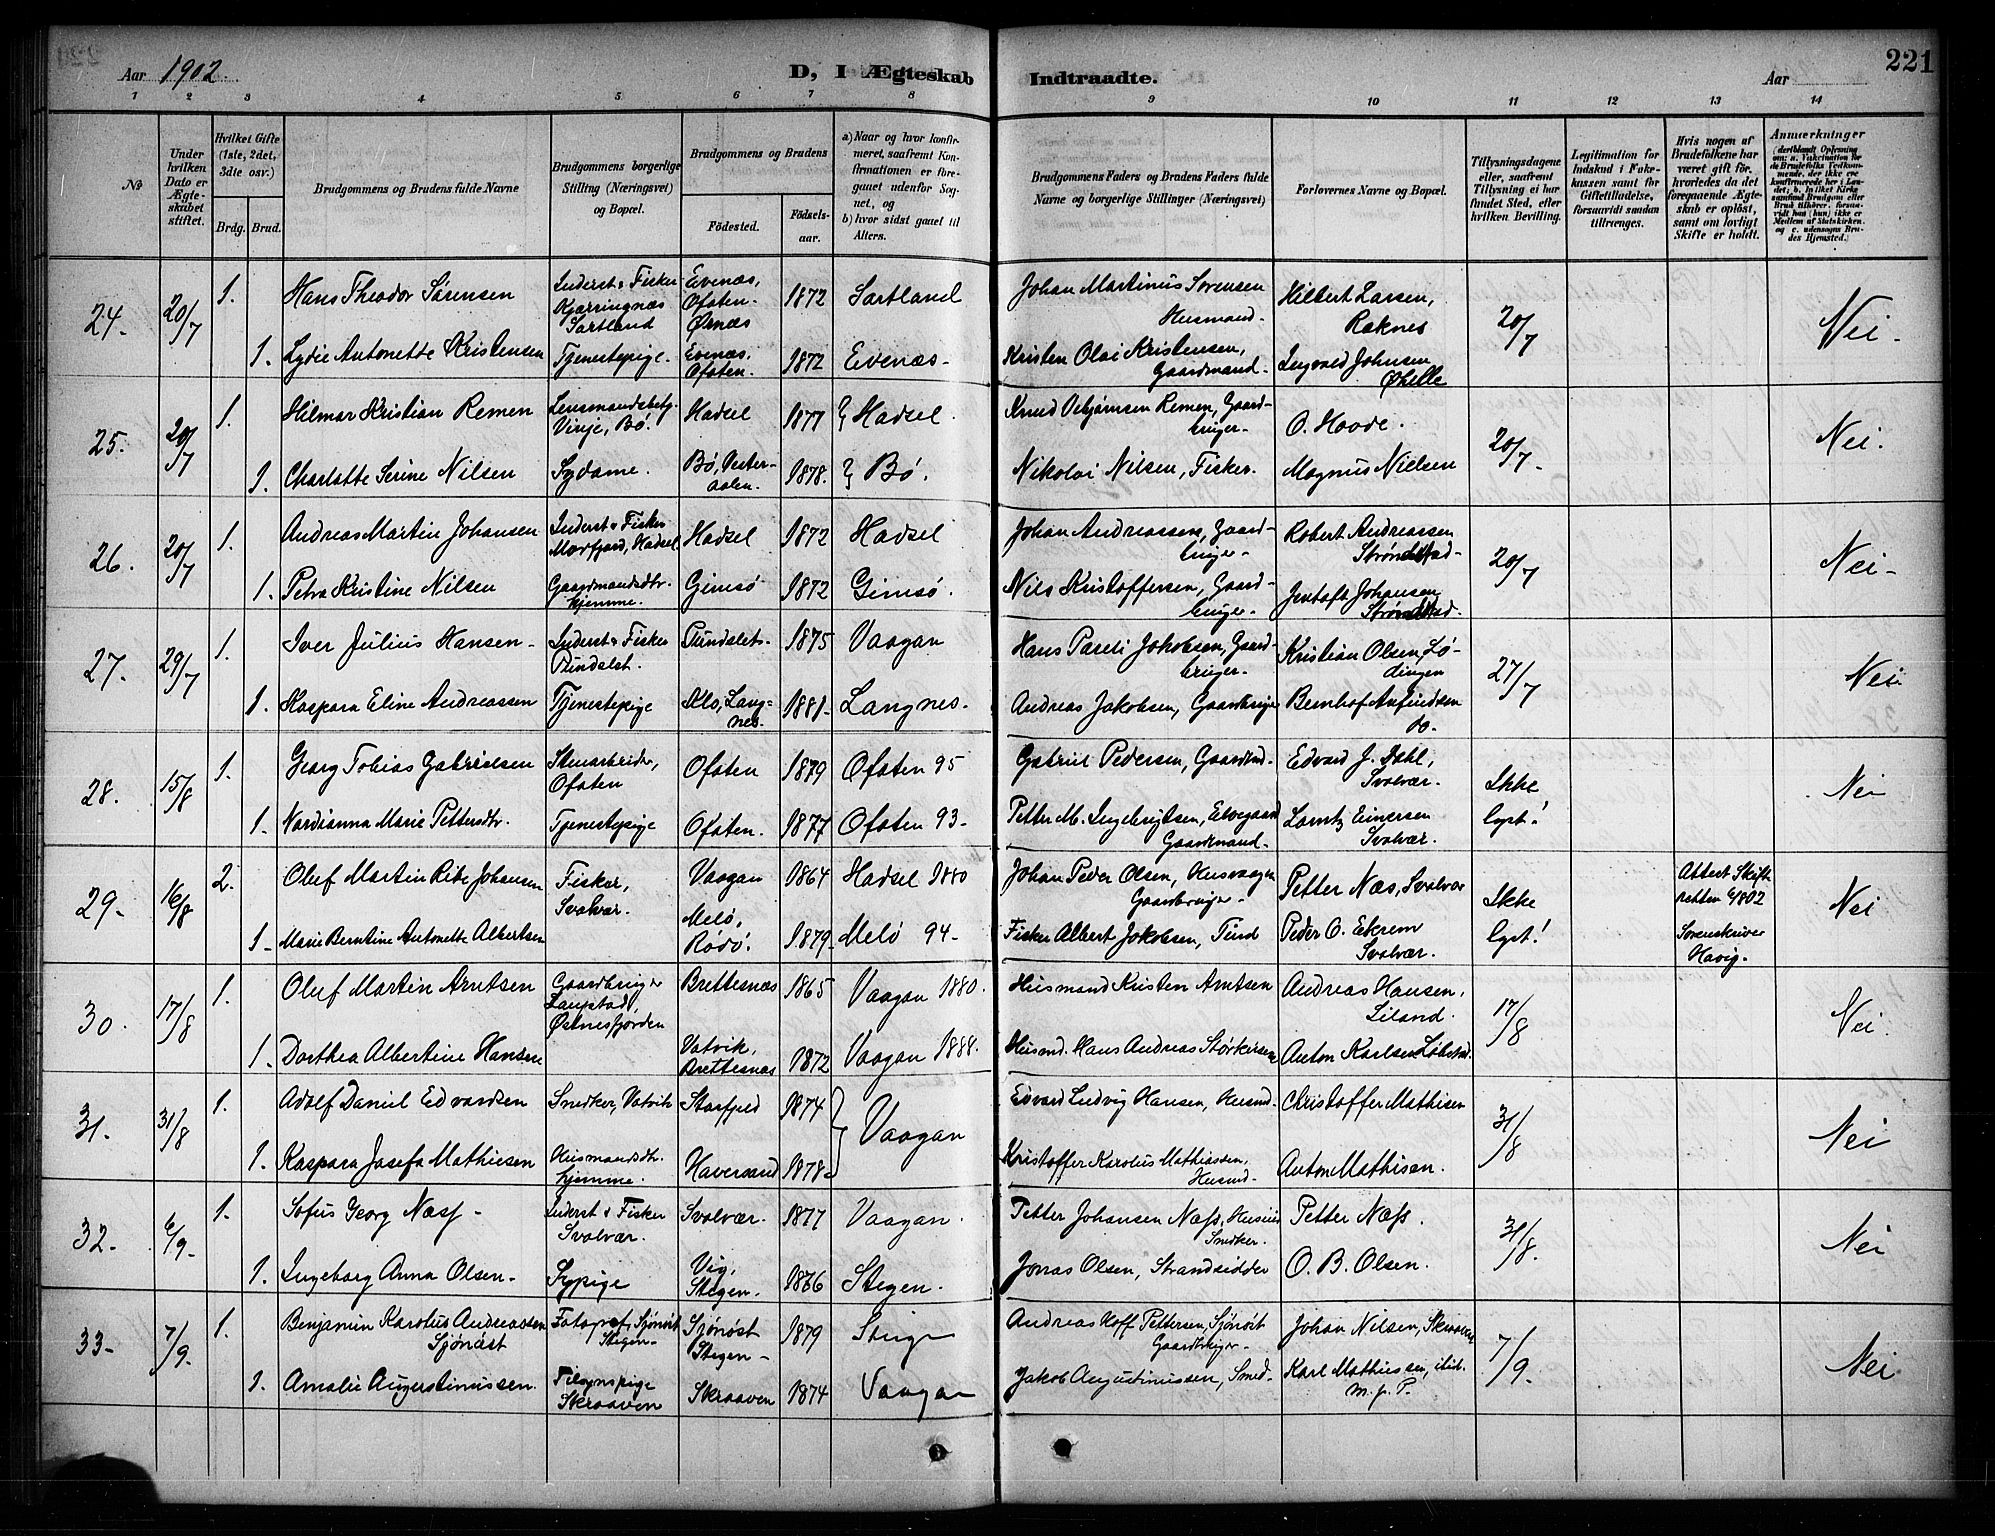 Aar 1902 D, I Ægteskab Indtraadte. Aar 221
1 2 3 4 5 6 7 8 9 10 11 12 13 14
№
Under hvilken Dato er Ægteskabet stiftet.
Hvilket Gifte (1ste, 2det, 3die osv.)
Brdg. Brud.
Brudgommens og Brudens fulde Navne
Brudgommens borgerlige Stilling (Næringsvei) og Bopæl.
Brudgommens og Brudens
Fødested. Fødselsaar.
a) Naar og hvor konfirmeret, saafremt Konfirmationen er foregaaet udenfor Sognet, og
b) hvor sidst gaaet til Alters.
Brudgommens Faders og Brudens Faders fulde Navne og borgerlige Stillinger (Næringsvei)
Forlovernes Navne og Bopæl.
Tillysningsdagene eller, saafremt Tillysning ei har fundet Sted, efter hvilken Bevilling.
Legitimation for Indskud i Enkekassen samt for Giftetilladelse, forsaavidt saadan tiltrænges.
Hvis nogen af Brudefolkene har været gift før, hvorledes da det foregaaende Ægteskab er opløst, samt om lovligt Skifte er holdt.
Anmærkninger
24. 20/7 1. Hans Theodor Sørensen Inderst & Fisker Kjerringnæs Sortland Evenæs, Ofoten. 1872 Sortland Johan Martinus Sørensen Husmand. Hilbert Larsen, Raknes 20/7 Nei.
1. Lydie Antonette Kristensen Tjenestepige. Ørnæs Evenæs, Ofoten. 1872 Evenæs. Kristen Olai Kristensen, Gaardmand. Ingvald Johnsen Øhelle
25. 20/7 1. Hilmar Kristian Remen Lensmandsbetj. Vinje, Bø. Hadsel 1877 Hadsel. Knud Pedersen Remen, Gaardbruger. O. Hovde. 20/7. Nei.
1. Charlotte Serine Nilsen Sydame. Bø, Vesteraalen. 1878. Bø. Nikolai Nilsen, Fisker. Magnus Nielsen
26. 20/7 1. Andreas Martin Johansen Inderst & Fisker Morfjord, Hadsel Hadsel 1872 Hadsel Johan Andreassen, Gaardbruger. Robert Andreassen Strønstad 20/7 Nei.
1. Petra Kristine Nilsen Gaardmandsdtr. hjemme. Gimsø 1872 Gimsø. Nils Kristoffersen, Gaardbruger. Jentoft Johansen Strønstad.
27. 29/7 1. Iver Julius Hansen Inderst & Fisker Pundslet. Pundslet. 1875 Vaagan Hans Pareli Jakobsen, Gaardbruger. Kristian Olsen, Lødingen 27/7 Nei
1. Kaspara Eline Andreassen Tjenestepige Klo, Langnes. 1881. Langnes. Andreas Jakobsen, Gaardbruger Bernhof Anfindsen do.
28. 15/8 1. Georg Tobias Gabrielsen Stenarbeider, Ofoten Ofoten 1879 Ofoten 95 Gabriel Pedersen, Gaardmd. Edvard J. Dahl, Svolvær. Ikke lyst! Nei
1. Nordianna Marie Pettersdtr. Tjenestepige Ofoten. 1877 Ofoten 93. Petter M. Ingebrigtsen, Elvegaard Gaardmand. Lorntz Einersen Svolvær.
29. 16/8 2. Oluf Martin Ribe Johansen Fisker, Svolvær. Vaagan 1864 Hadsel 1880 Johan Peder Olsen, Husvaagen Gaardbruger. Petter Næs, Svolvær Ikke lyst! Attest Skifteretten 6/8 02 Sorenskriver Havig. Nei
1. Marie Berntine Antonette Albertsen Melø, Rødø. 1879. Melø 94. Fisker Albert Jakobsen, Tind Peder O. Ekrem Svolvær.
30. 17/8 1. Oluf Martin Arntsen Gaardbruger Laupstad, Østnesfjorden Brettesnæs 1865 Vaagan 1880. Husmand Kristen Arntsen Andreas Hansen, Liland. 17/8 Nei.
1. Dorthea Albertine Hansen Vatvik, Brettesnæs 1872 Vaagan 1888. Husmd. Hans Andreas Størkersen Anton Karlsen
31. 31/8 1. Adolf Daniel Edvardsen Snedker, Vatvik Storfjeld 1874 Vaagan Edvard Ludvig Hansen, Husmd. Christoffer Mathisen 31/8 Nei
1. Kaspara Josefa Mathiesen Husmandsdtr. hjemme. Haversand 1878. Kristoffer Karolus Mathiassen, Husmd. Anton Mathisen.
32. 6/9. 1. Sofus Georg Næss Inderst & Fisker Svolvær. Svolvær. 1877 Vaagan. Petter Johansen Næss, Snedker. Petter Næss. 31/8. Nei
1. Ingeborg Anna Olsen. Sypige Vig, Stegen. 1876 Stegen. Jonas Olsen, Strandsidder O. B. Olsen.
33. 7/9. 1. Benjamin Karolius Andreassen Sjønøst Fotograf, Sjønøst Stegen Sjønøst Stegen 1879 Steigen Andreas Hoff Pettersen, Sjønøst Gaardbruger. Johan Nilsen, Skraaven 7/9. Nei
1. Amalie Augustinussen. Skraaven Skraaven 1874 Vaagan Jakob Augustinussen, Smed. Karl Mathiessen, ibid. m. p. P.